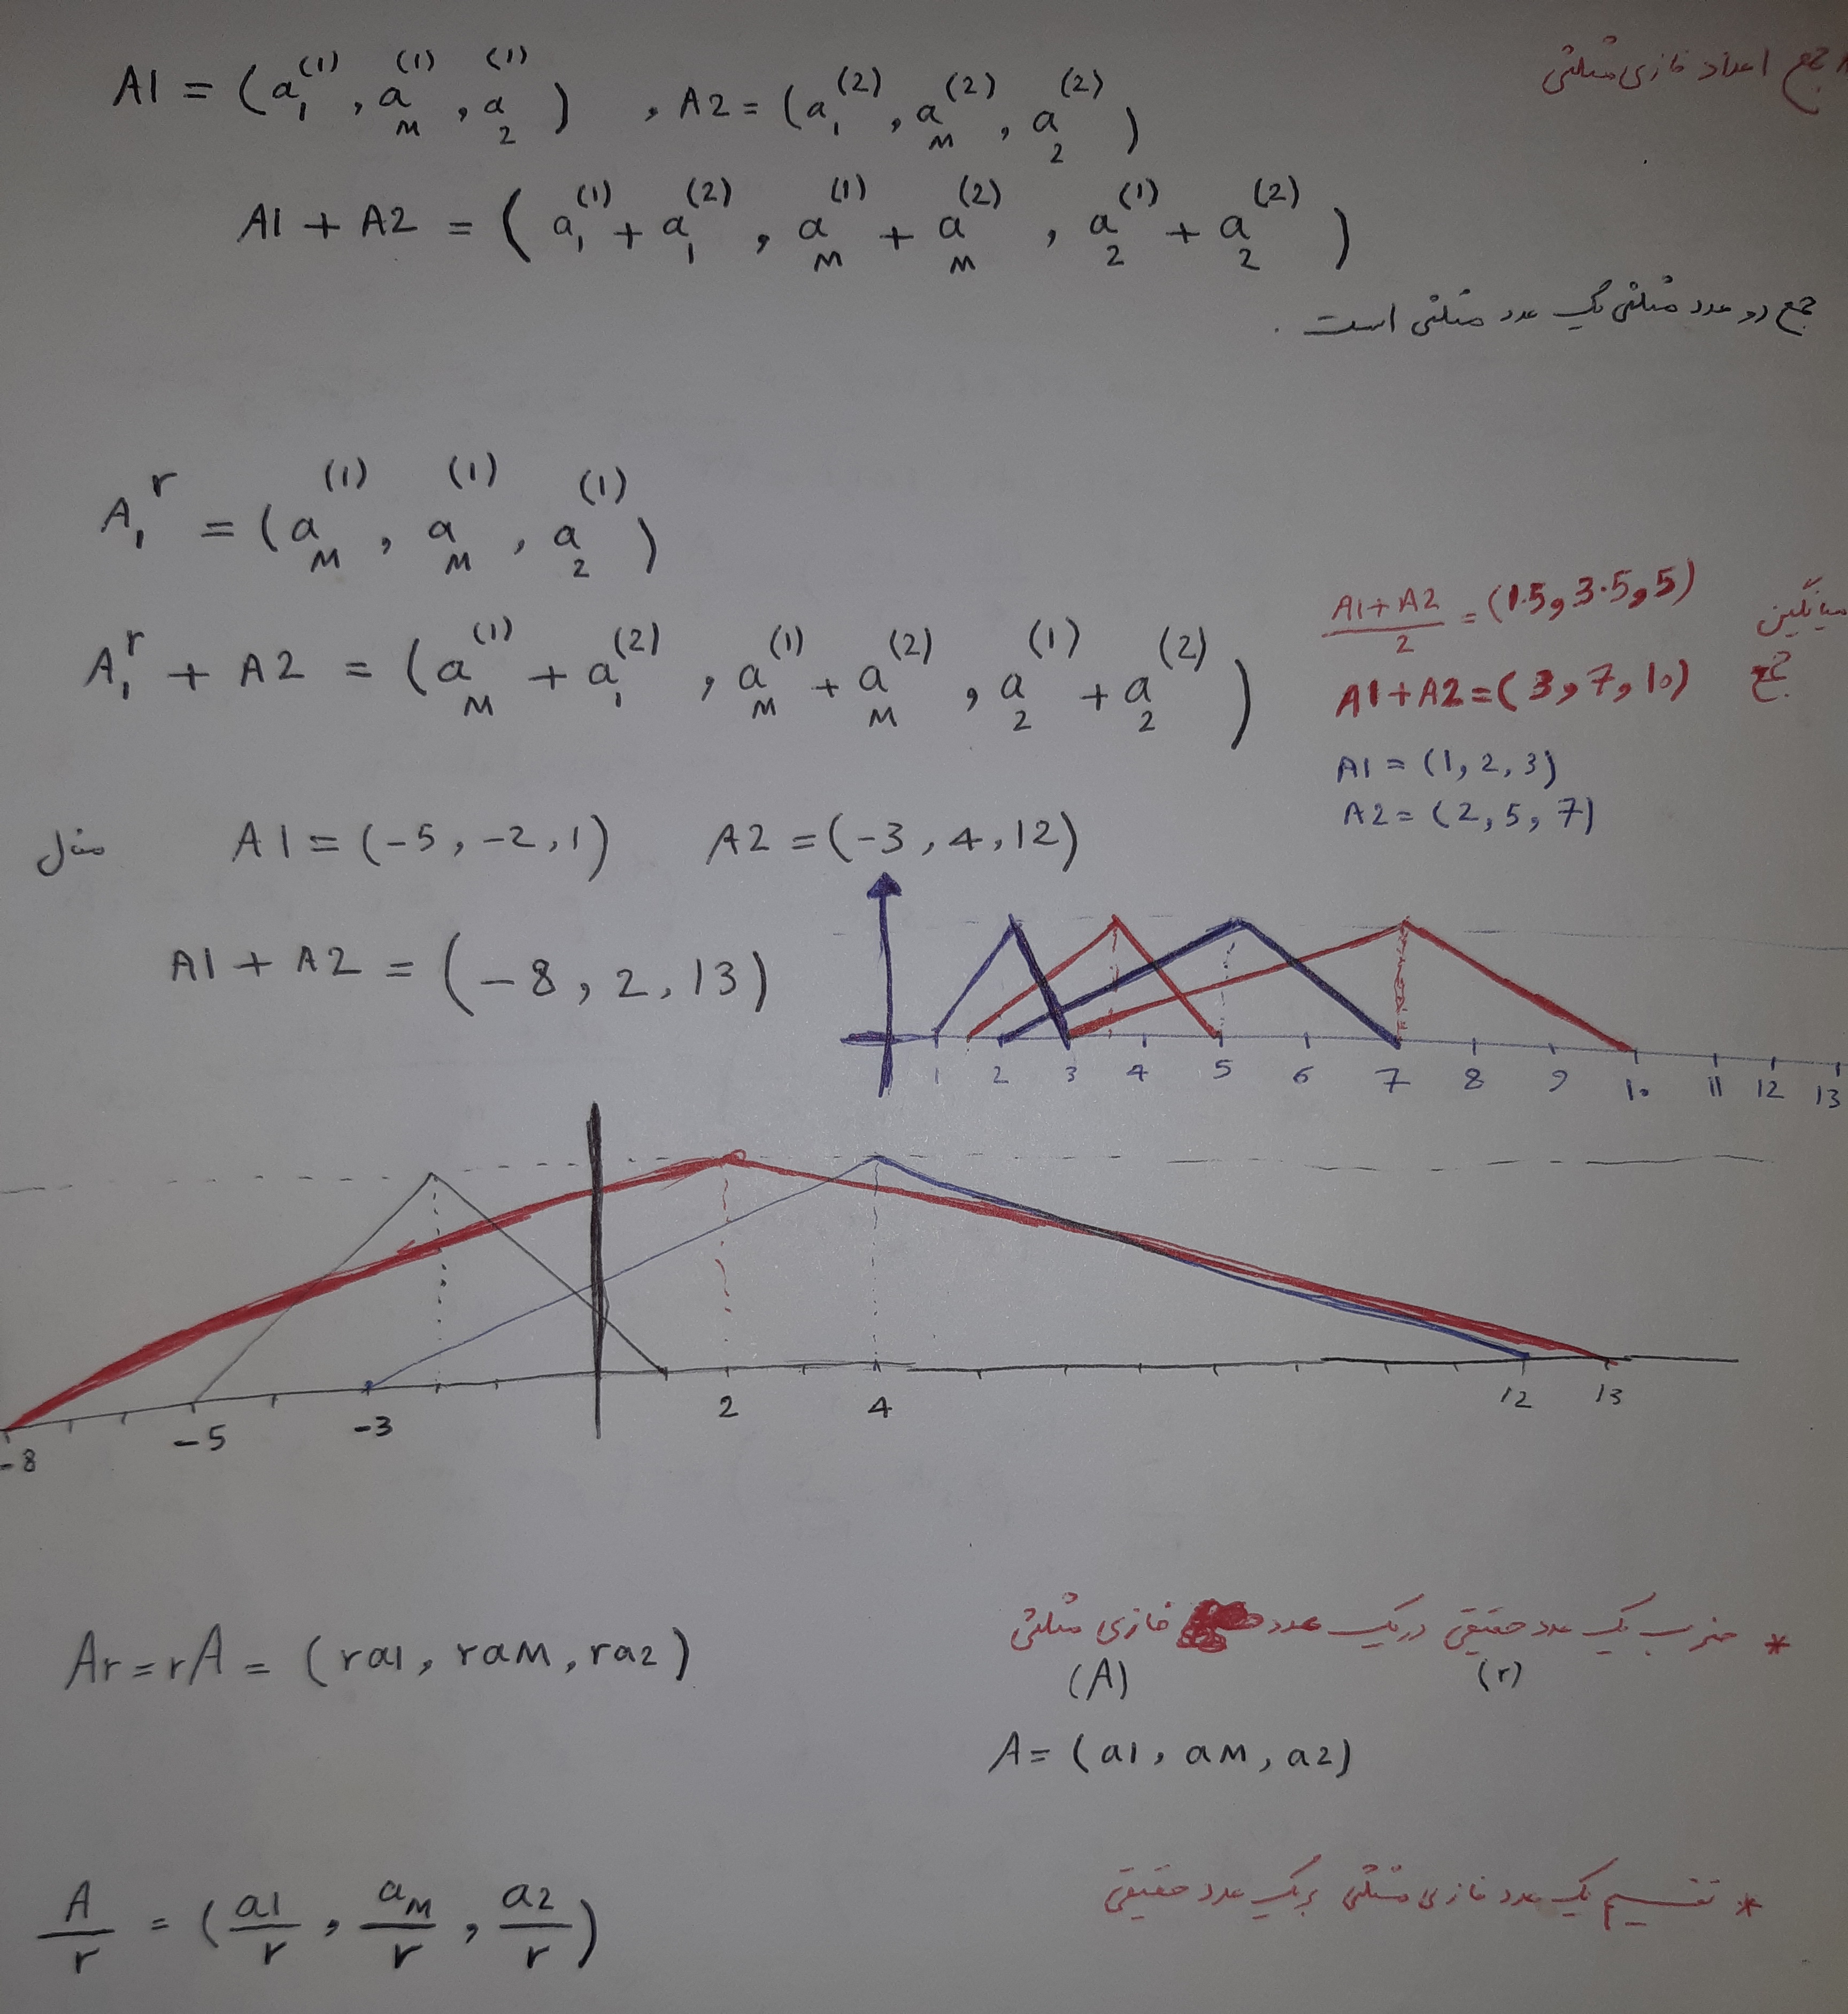 جمع اعداد فازی مثلثی
A1 = (a₁⁽¹⁾, a_M⁽¹⁾, a₂⁽¹⁾) , A2 = (a₁⁽²⁾, a_M⁽²⁾, a₂⁽²⁾)
A1 + A2 = (a₁⁽¹⁾ + a₁⁽²⁾, a_M⁽¹⁾ + a_M⁽²⁾, a₂⁽¹⁾ + a₂⁽²⁾)
جمع دو عدد مثلثی یک عدد مثلثی است .
A₁ʳ = (a_M⁽¹⁾, a_M⁽¹⁾, a₂⁽¹⁾)
A₁ʳ + A2 = (a_M⁽¹⁾ + a₁⁽²⁾, a_M⁽¹⁾ + a_M⁽²⁾, a₂⁽¹⁾ + a₂⁽²⁾)
میانگین (A1+A2)/2 = (1.5, 3.5, 5)
جمع A1+A2 = (3, 7, 10)
A1 = (1, 2, 3)
A2 = (2, 5, 7)
مثل A1 = (-5, -2, 1) A2 = (-3, 4, 12)
A1 + A2 = (-8, 2, 13)
1 2 3 4 5 6 7 8 9 10 11 12 13
-8 -5 -3 2 4 12 13
* ضرب یک عدد حقیقی در یک عدد فازی مثلثی
(r) (A)
Ar = rA = (ra1, raM, ra2)
A = (a1, aM, a2)
* تقسیم یک عدد فازی مثلثی بر یک عدد حقیقی
A/r = (a1/r, a_M/r, a2/r)